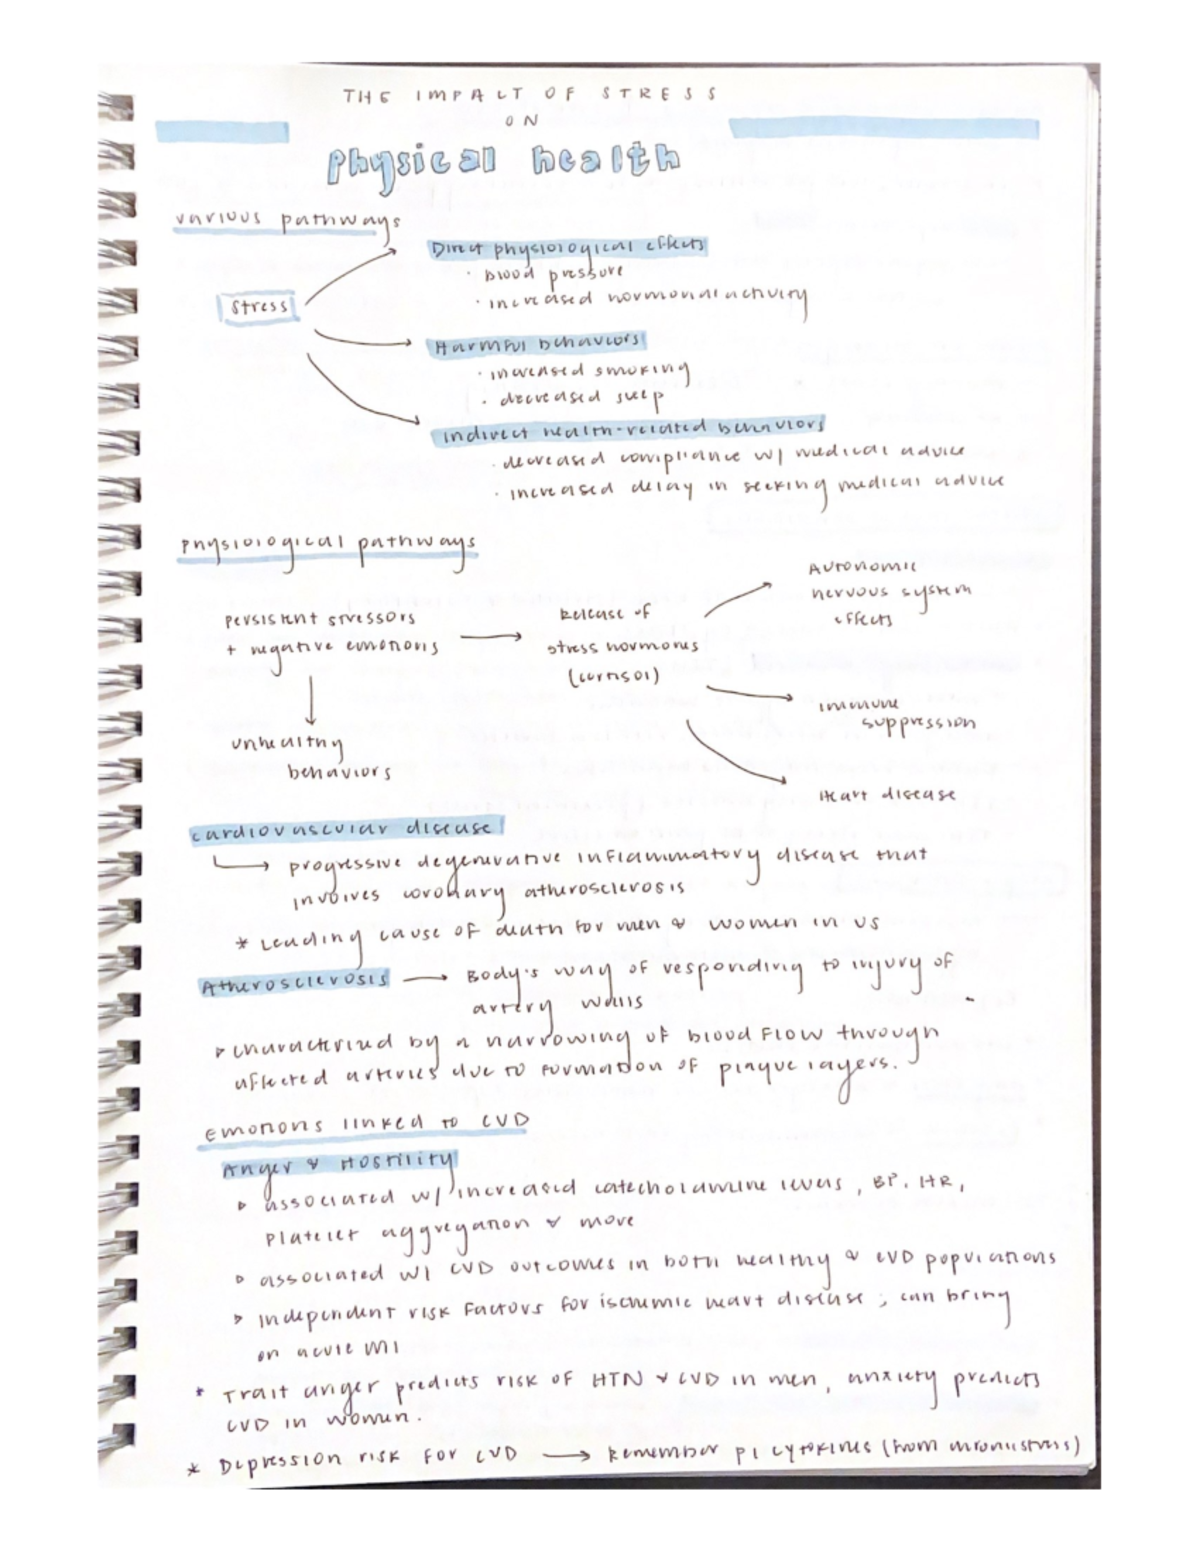 THE IMPACT OF STRESS
ON
Physical health
various pathways
Direct physiological effects
· blood pressure
· increased hormonal activity
Stress
Harmful behaviors
· increased smoking
· decreased sleep
indirect health-related behaviors
· decreased compliance w/ medical advice
· increased delay in seeking medical advice
physiological pathways
Autonomic
nervous system
effects
persistent stressors
+ negative emotions
Release of
stress hormones
(cortisol)
immune
suppression
unhealthy
behaviors
Heart disease
cardiovascular disease
progressive degenerative inflammatory disease that
involves coronary atherosclerosis
* Leading cause of death for men & women in US
Atherosclerosis → Body's way of responding to injury of
artery walls
▹ characterized by a narrowing of blood flow through
affected arteries due to formation of plaque layers.
Emotions linked to CVD
Anger & Hostility
▹ associated w/ increased catecholamine levels, BP, HR,
platelet aggregation & more
▹ associated w/ CVD outcomes in both healthy & CVD populations
▹ independent risk factors for ischemic heart disease; can bring
on acute MI
* Trait anger predicts risk of HTN & CVD in men, anxiety predicts
CVD in women.
* Depression risk for CVD → Remember PI cytokines (from chronic stress)